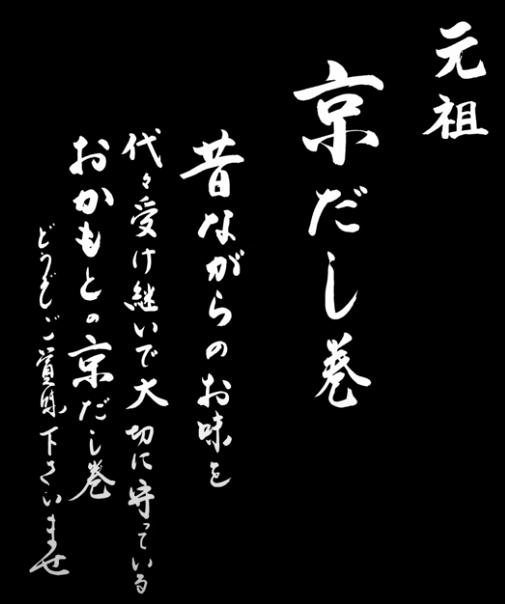 元祖
京だし巻
昔ながらのお味を
代々受け継いで大切に守っている
おかもとの京だし巻
どうぞご賞味下さいませ